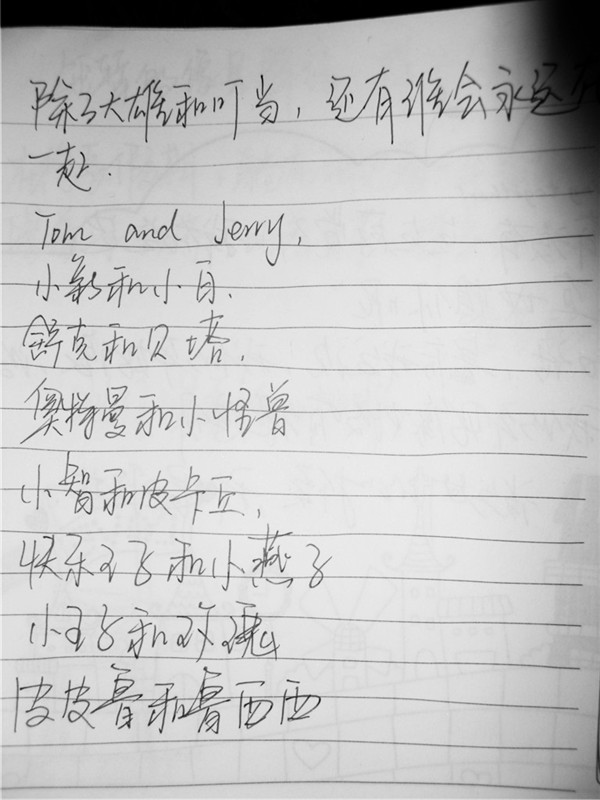 除了大雄和叮当，还有谁会永远在
一起.
Tom and Jerry,
小新和小白.
舒克和贝塔,
奥特曼和小怪兽
小智和皮卡丘,
快乐王子和小燕子
小王子和玫瑰
皮皮鲁和鲁西西